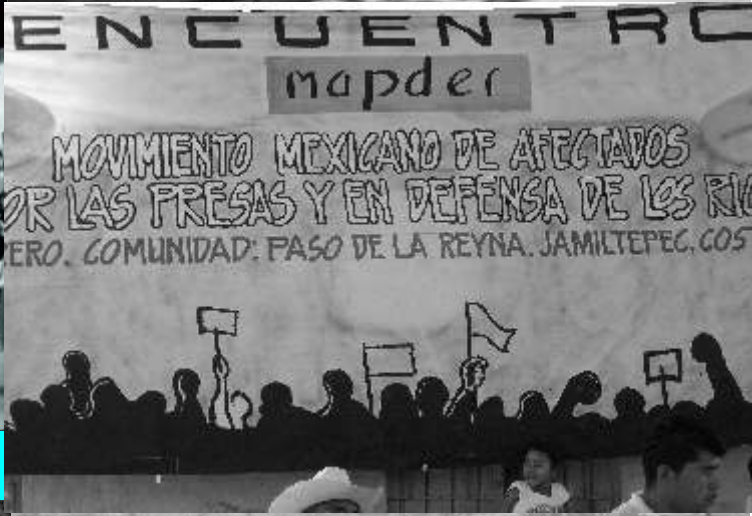 ENCUENTRO
mapder
MOVIMIENTO MEXICANO DE AFECTADOS
OR LAS PRESAS Y EN DEFENSA DE LOS RI
ERO. COMUNIDAD: PASO DE LA REYNA. JAMILTEPEC, COS